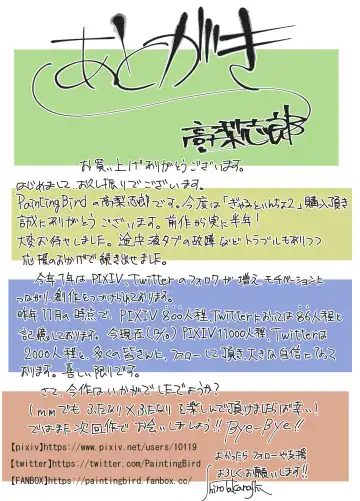 あとがき
高梨志郎
お買い上げありがとうございます。
はじめまして、お久し振りでございます。
PaintingBirdの高梨志郎です。今度は「ぎゃるといんちょ2」購入頂き
誠にありがとうございます。前作から実に半年!
大変お待せしました。途中液タブの故障などトラブルもありつつ、
応援のおかげで続き出せました。
今年1年はPIXIV、Twitterのフォロワが増え、モチベーションに
つながり、創作をつづけられております。
昨年11月の時点で、PIXIV 800人程、Twitterにおいては86人程と
記憶しております。今現在 PIXIV11000人程、Twitterは
2000人程と、多くの皆さんに、フォローして頂き大きな自信になって
おります。喜しい限りです。
さて、今作はいかがでしたでしょうか?
1mmでもふたなり×ふたなりを楽しんで頂けましたらば幸い!
ではまた次回作でお会いしましょう!!Bye-Bye!!
【pixiv】https://www.pixiv.net/users/10119
【twitter】https://twitter.com/PaintingBird
【FANBOX】https://paintingbird.fanbox.cc/
よかったらフォローや支援
よろしくお願いします!!